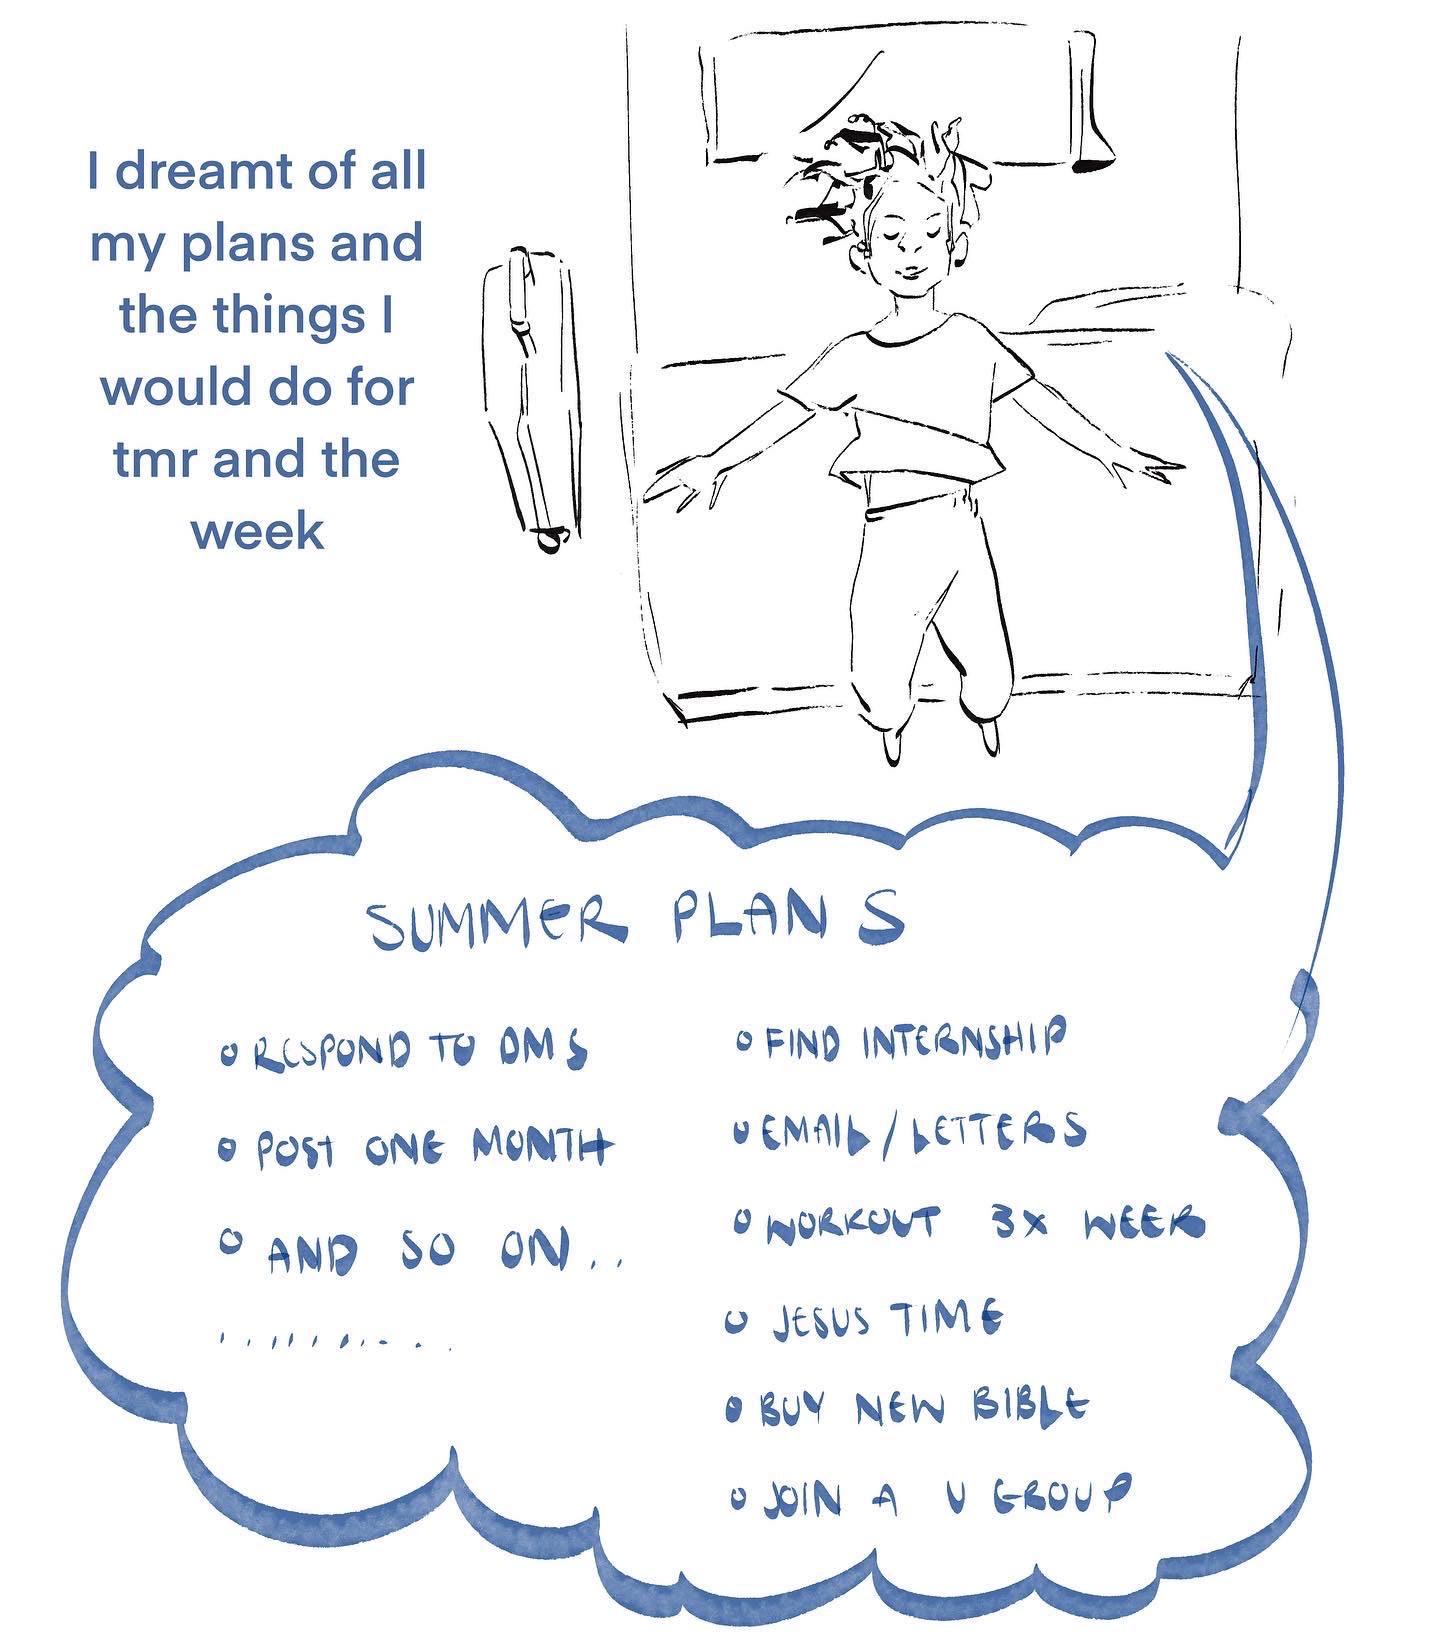 I dreamt of all
my plans and
the things I
would do for
tmr and the
week
SUMMER PLANS
RESPOND TO DMS
POST ONE MONTH
AND SO ON..
..........
FIND INTERNSHIP
EMAIL/LETTERS
WORKOUT 3X WEEK
JESUS TIME
BUY NEW BIBLE
JOIN A U GROUP